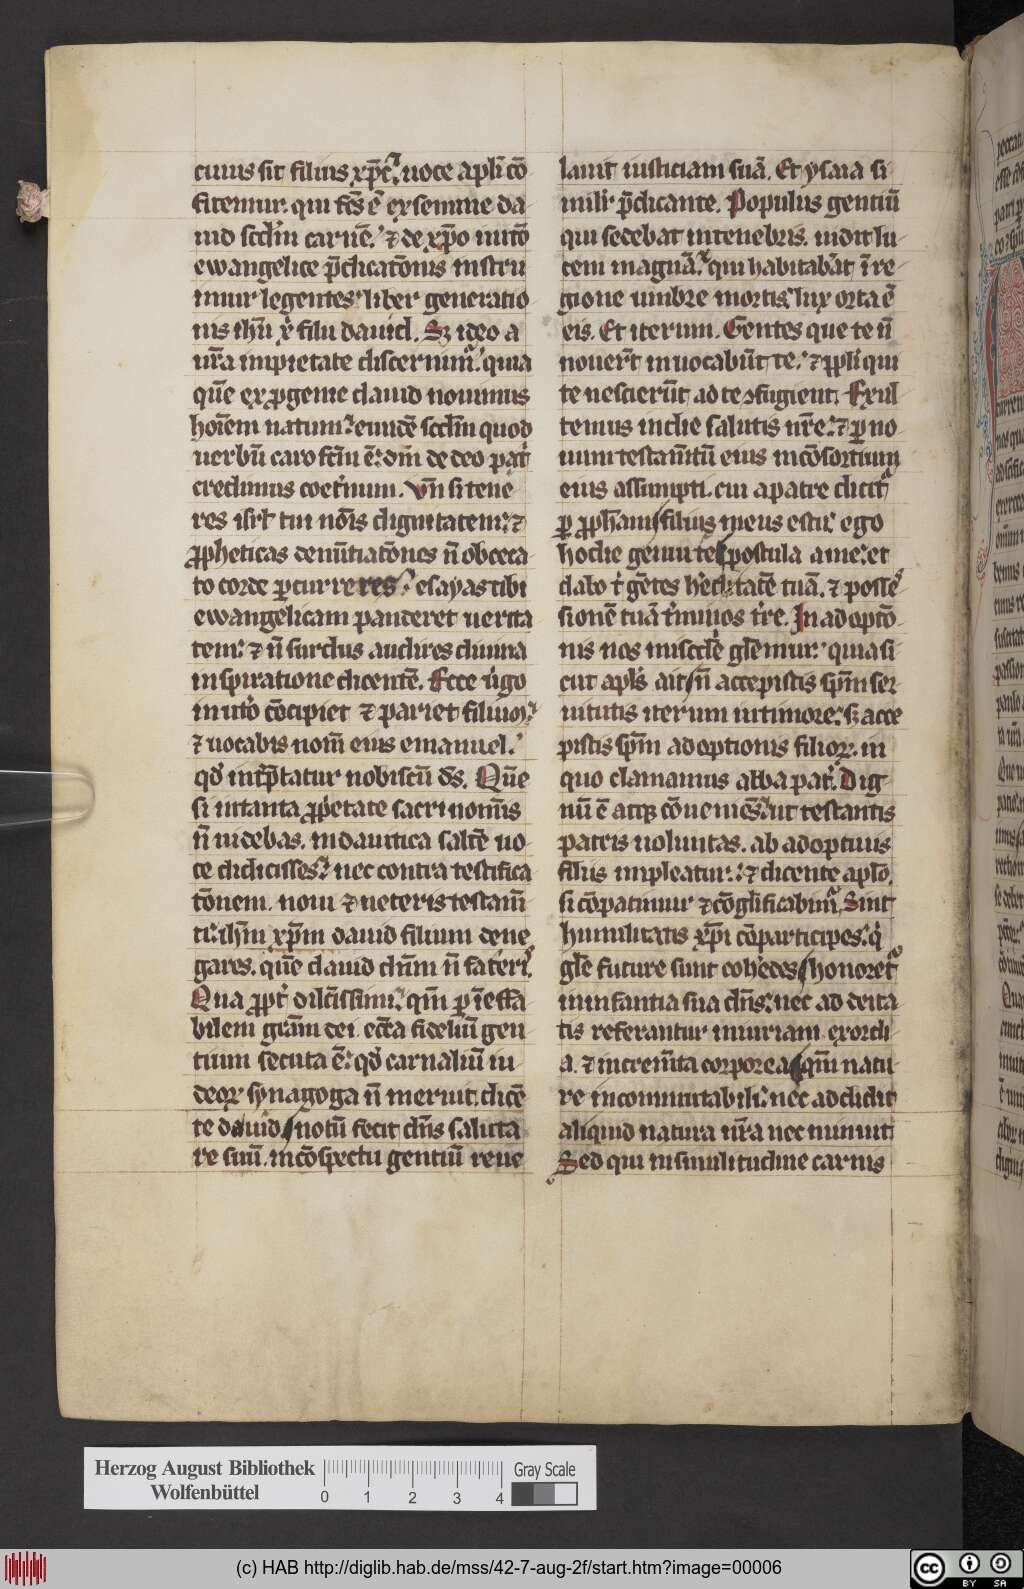 cuius sit filius xp̄c. uoce apl̄i cō
fitemur. qui fc̄s ē ex semine da
uid scd̄m carnē. ⁊ de xp̄o inito
ewangelice p̄dicatōnis instru
imur legentes. liber generatio
nis ih̄u xp̄i filii dauid. Sꝫ ideo a
ur̄a inpietate discernimꝰ. quia
quē ex ꝓgenie dauid nouimus
hoīem natum. eundē scd̄m quod
uerbū caro fcm̄ ē. dm̄ de deo pat͛
credimus coet͛num. Vn̄ si tene
res isrl̄ tui nois̄ dignitatem. ⁊
ꝓpheticas denūtiatōnes n̄ obceca
to corde ꝑcurreres. esayas tibi
ewangelicam panderet uerita
tem. ⁊ n̄ surdus audires diuina
inspiratione dicentē. Ecce ui͛go
in ut͛o cōcipiet ⁊ pariet filium.
⁊ uocabis nom̄ eius emanuel.
qd̓ int͛p̄tatur nobiscū ds̄. Quē
si in tanta ꝓp̓etate sacri nomīs
n̄ uidebas. in dauitica saltē uo
ce didicisses. nec contra testifica
tōnem noui ⁊ ueteris testam̄
ti. ih̄m xp̄m dauid filium dene
gares. quē dauid dn̄m n̄ fateris.
Qua ꝓpt͛ dilc̄issimi. qm̄ ꝑ īeffa
bilem grām dei. ecc̄a fideliū gen
tium secuta ē. qd̓ carnaliū iu
deoꝝ synagoga n̄ meruit. dicē
te dauid. notū fecit dn̄s saluta
re suū. in cōspectu gentiū reue
lauit iusticiam suā. Et ysaia si
milit͛ p̄dicante. Populus gentiū
qui sedebat in tenebris. uidit lu
cem magnā. qui habitabāt ī re
gione umbre mortis. lux orta ē
eis. Et iterum. Gentes que te n̄
nouer̄t inuocabūt te. ⁊ ppl̄i qui
te nescierūt ad te ꝯfugient. Exul
temus in die salutis nr̄e. ⁊ ꝑ no
uum testam̄tū eius in cōsortium
eius assumpti. cui a patre dicit͛
ꝑ ꝓph̄am. filius meus es tu. ego
hodie genui te. postula a me. et
dabo t͛ gētes h̓editatē tuā. ⁊ posses
sionē tuā t͛minos t͛re. In adoptō
nis nos misc̄dē glēmur. quia si
cut apl̄s ait. n̄ accepistis spm̄ ser
uitutis iterum in timore. sꝫ acce
pistis spm̄ adoptionis filioꝝ. in
quo clamamus abba pat͛. Dig
nū ē atqꝫ cōueniēs. ut testantis
patris uoluntas. ab adoptiuis
filiis impleatur. ⁊ dicente aplō.
si cōpatimur ⁊ cōgl̄ificabimꝰ. Sint
humilitatis xp̄i cōparticipes. q͛
glē future sunt coh̓edes. honoret͛
in infantia sua dn̄s. nec ad deita
tis referantur iniuriam. exordi
a. ⁊ increm̄ta corporea. qm̄ natu
re incommutabili. nec addidit
aliquid natura nr̄a nec minuit.
Sed qui in similitudine carnis
Herzog August Bibliothek
Wolfenbüttel
0 1 2 3 4
Gray Scale
(c) HAB http://diglib.hab.de/mss/42-7-aug-2f/start.htm?image=00006
cc BY SA